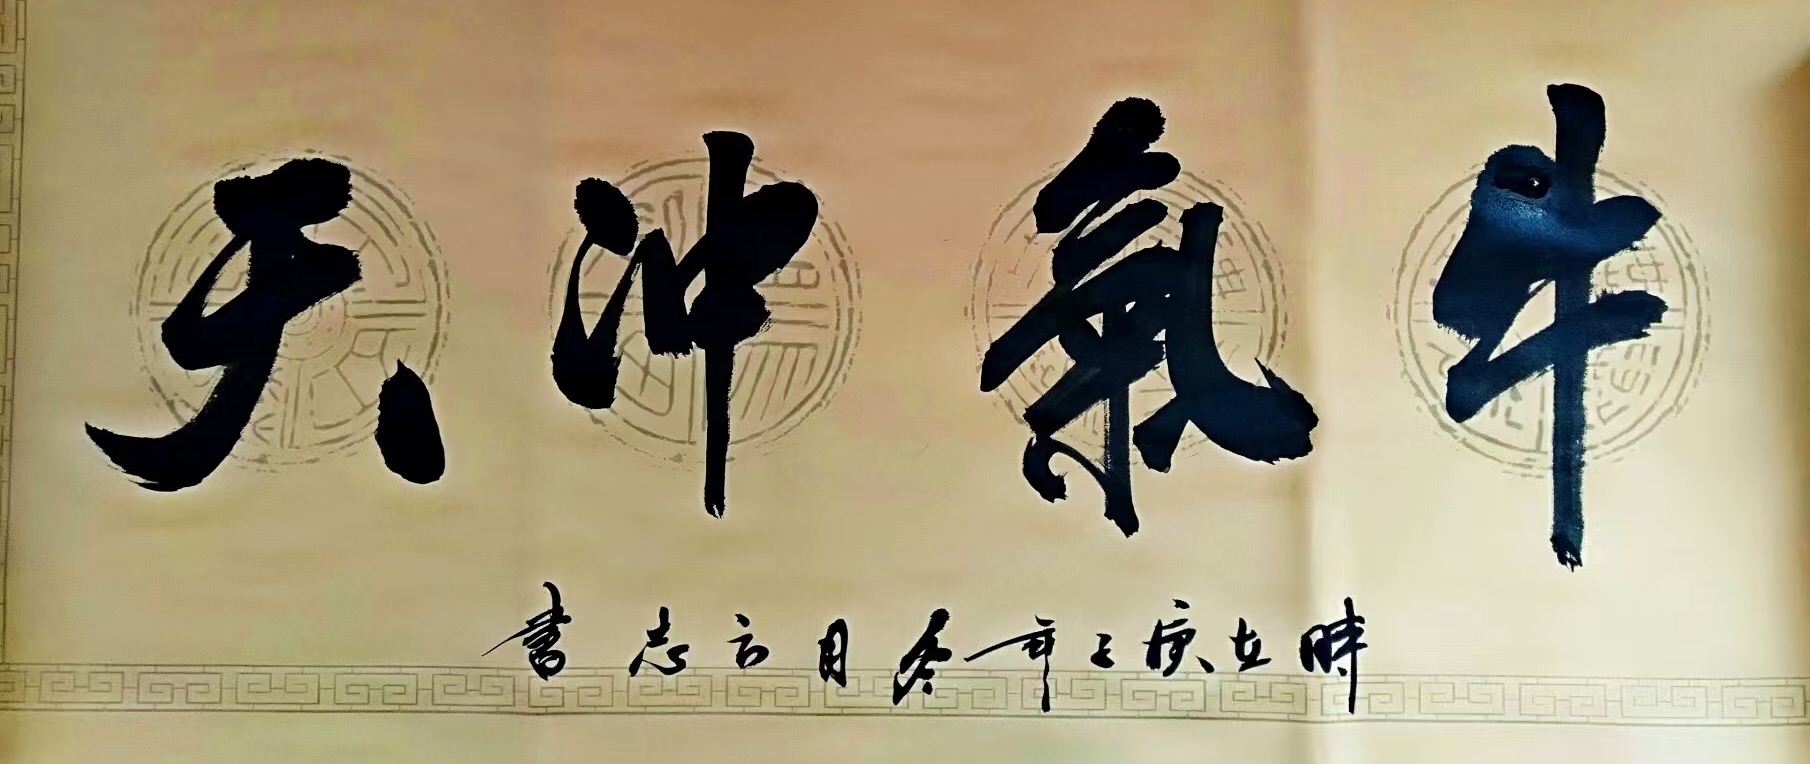 牛氣冲天
時在庚子年冬月方志書